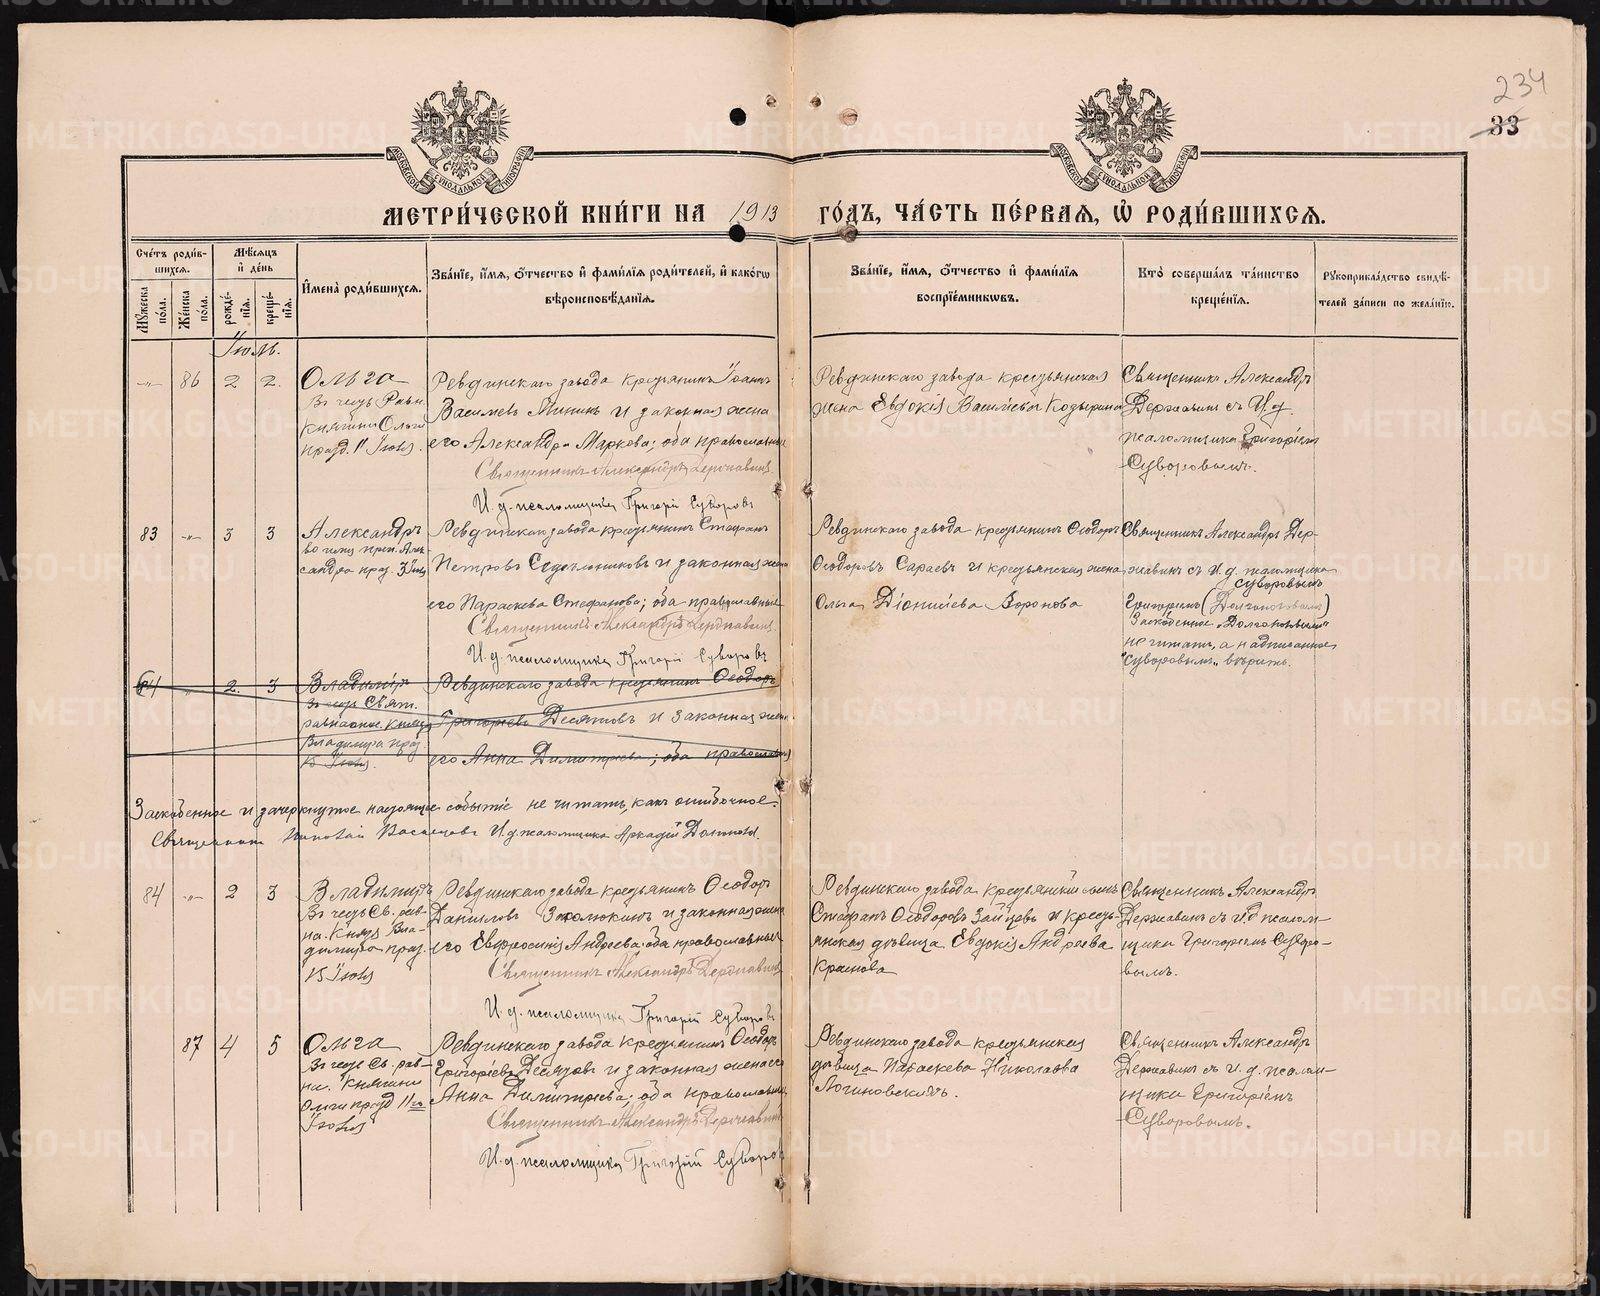 234
33
МЕТРИ́ЧЕСКОЙ КНИ́ГИ НА 1913 ГО́ДЪ, ЧА́СТЬ ПЕ́РВАЯ, Ѡ҆ РОДИ́ВШИХСЯ.
Сче́тъ роди́в-
шихся.
Мꙋ́жеска по́ла.
Же́нска по́ла.
Мѣ́сяцъ и҆ де́нь
рожде́-
нїя.
креще́-
нїя.
И҆мена̀ роди́вшихся.
Зва́нїе, и҆́мя, ѻ҆́тчество и҆ фами́лїя роди́телей, и҆ како́гѡ
вѣроисповѣ́данїя.
Зва́нїе, и҆́мя, ѻ҆́тчество и҆ фами́лїя
воспрїе́мникѡвъ.
Кто̀ соверша́лъ та́инство
креще́нїя.
Рꙋкоприкла́дство свидѣ́-
телей за́писи по жела́нїю.
Іюль.
-"- 86 2 2.
Ольга
Въ честь Равн.
Княгини Ольги
празд. 11 Іюля.
Ревдинскаго завода крестьянинъ Іоаннъ
Васильевъ Мининъ и законная жена
его Александра Маркова; оба православные
Священникъ Александръ Державинъ.
И. д. псаломщика Григорій Суворовъ
Ревдинскаго завода крестьянская
жена Евдокія Васильева Козырина
Священникъ Александръ
Державинъ съ И. д.
псаломщика Григоріемъ
Суворовымъ.
83 -"- 3 3
Александръ
во имя преп. Алек-
сандра праз. 3 Іюля
Ревдинскаго завода крестьянинъ Стефанъ
Петровъ Сѣдельниковъ и законная жена
его Параскева Стефанова; оба православные
Священникъ Александръ Державинъ.
И. д. псаломщика Григорій Суворовъ
Ревдинскаго завода крестьянинъ Ѳеодоръ
Ѳеодоровъ Сараевъ и крестьянская жена
Ольга Діонисіева Воронова
Священникъ Александръ Дер-
жавинъ съ И. д. псаломщика
Суворовымъ
Григоріемъ (Долгополовымъ)
Заскобленное „Долгополовымъ“
не читать, а надписанное
„Суворовымъ“ вѣрить.
84 " 2. 3
Владиміръ
Въ честь Свят.
равноапос. Князя
Владиміра праз.
15 Іюля.
Ревдинскаго завода крестьянинъ Ѳеодоръ
Григорьевъ Десятовъ и законная жена
его Анна Димитріева; оба православные
Заскобленное и зачеркнутое настоящее событіе не читать, какъ ошибочное.
Священникъ И. д. псаломщика Аркадій
84 -"- 2 3
Владиміръ
Въ честь Св. рав-
на. Князя Вла-
диміра праз.
15 Іюля
Ревдинскаго завода крестьянинъ Ѳеодоръ
Даниловъ и законная жена
его Евфросинія Андреева; оба православные
Священникъ Александръ Державинъ
И. д. псаломщика Григорій Суворовъ
Ревдинскаго завода крестьянскій сынъ
Стефанъ Ѳеодоровъ Зайцевъ и кресть-
янская дѣвица Евдокія Андреева
Краснова
Священникъ Александръ
Державинъ съ И. д псалом-
щика Григоріемъ Суворо-
вымъ.
87 4 5
Ольга
Въ честь Св. рав-
на. Княгини
Ольги празд 11го
Іюля
Ревдинскаго завода крестьянинъ Ѳеодоръ
Григорьевъ Десятовъ и законная жена его
Анна Димитріева; оба православные
Священникъ Александръ Державинъ
И. д. псаломщика Григорій Суворовъ
Ревдинскаго завода крестьянская
дѣвица Параскева Николаева
Логиновскихъ.
Священникъ Александръ
Державинъ съ И. д. псалом-
щика Григоріемъ
Суворовымъ.
METRIKI.GASO-URAL.RU